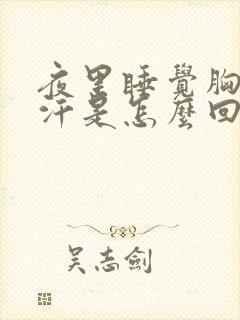 夜里睡覺胸
汗是怎麼回
吴志劍